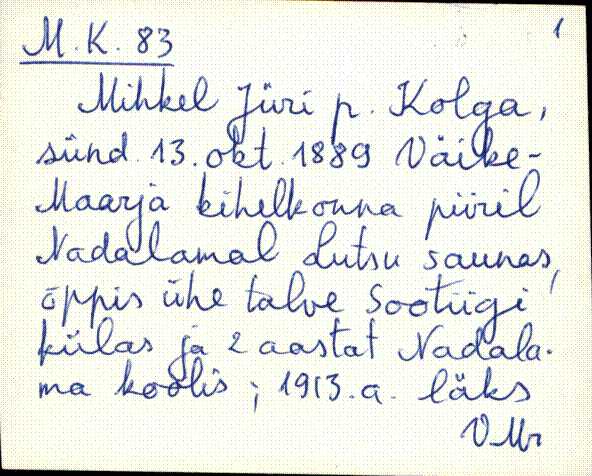 M. K. 83
1
Mihkel Jüri p. Kolga,
sünd. 13. okt. 1889 Väike-
Maarja kihelkonna piiril
Nadalamal Lutsu saunas,
õppis ühe talve Sootiigi
külas ja 2 aastat Nadala-
ma koolis; 1913. a. läks
V-Mr